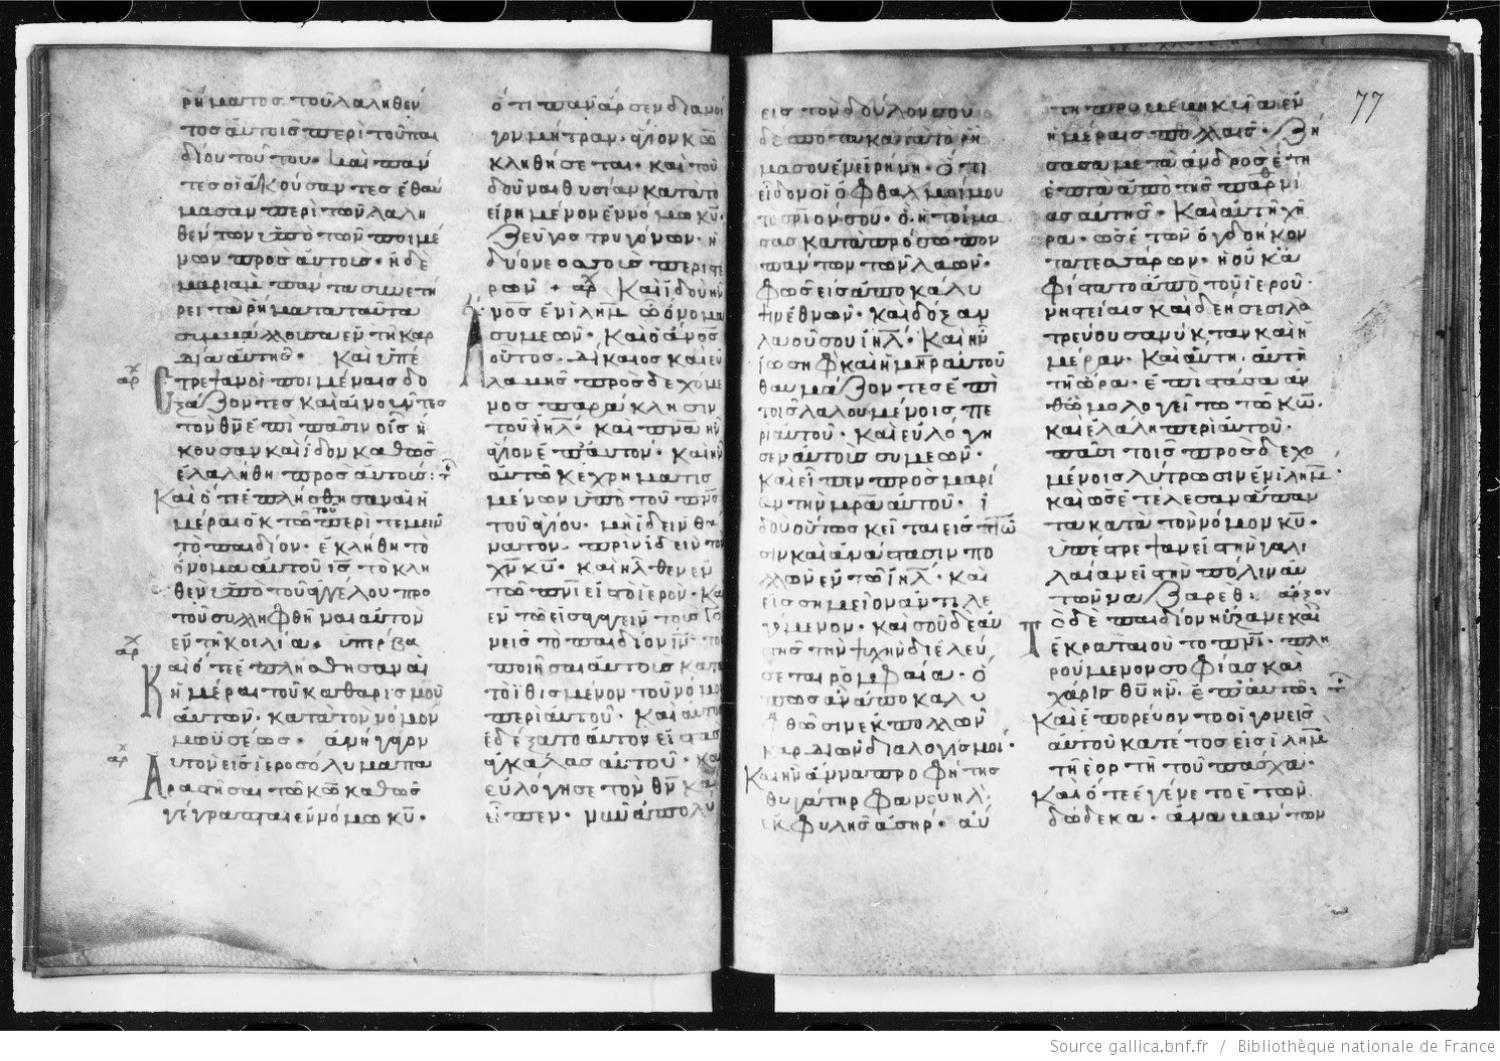 ρήματος τοῦ λαληθέν
τος αὐτοῖς περὶ τοῦ παι
δίου τούτου· καὶ πάν
τες οἱ ἀκούσαντες ἐθαύ
μασαν περὶ τῶν λαλη
θέντων ὑπὸ τῶν ποιμέ
νων πρὸς αὐτούς· ἡ δὲ
μαριὰμ πάντα συνετή
ρει τὰ ῥήματα ταῦτα
συμβάλλουσα ἐν τῇ καρ
δίᾳ αὐτῆς· Καὶ ὑπέ
στρεψαν οἱ ποιμένες δο
ξάζοντες καὶ αἰνοῦντες
τὸν θν ἐπὶ πᾶσιν οἷς ἤ
κουσαν καὶ ἴδον καθὼς
ἐλαλήθη πρὸς αὐτούς:
Καὶ ὅτε ἐπλήσθησαν αἱ ἡ
μέραι ὀκτὼ τοῦ περιτεμεῖν
τὸ παιδίον· ἐκλήθη τὸ
ὄνομα αὐτοῦ ις τὸ κλη
θὲν ὑπὸ τοῦ ἀγγέλου προ
τοῦ συλληφθῆναι αὐτὸν
ἐν τῇ κοιλίᾳ· ὑπέρβα
Καὶ ὅτε ἐπλήσθησαν αἱ
ἡμέραι τοῦ καθαρισμοῦ
αὐτῶν· κατὰ τὸν νόμον
μωϋσέως· ἀνήγαγον
αὐτὸν εἰς ἱεροσόλυμα πα
ραστῆσαι τῷ κω καθὼς
γέγραπται ἐν νόμω κυ·
ὅτι πᾶν ἄρσεν διανοῖ
γον μήτραν· ἅγιον κω
κληθήσεται· καὶ τοῦ
δοῦναι θυσίαν κατὰ τὸ
εἰρημένον ἐν νόμω κυ·
Ζεῦγος τρυγόνων· ἢ
δύο νεοσσοὺς περιστε
ρῶν + αρχ Καὶ ἰδοὺ ἦν
ανος ἐν ιλημ ὧ ὄνομα
συμεών· Καὶ ὁ ανος
οὗτος· δίκαιος καὶ εὐ
λαβὴς προσδεχόμε
νος παράκλησιν
τοῦ ιηλ· καὶ πνα ἦν
ἅγιον ἐπ' αὐτόν· Καὶ ἦν
αὐτῶ κεχρηματισ
μένων ὑπὸ τοῦ πνς
τοῦ ἁγίου· μὴ ἰδεῖν θά
νατον· πρὶν ἰδεῖν τὸν
χν κυ· Καὶ ἦλθεν ἐν
τῶ πνι εἰς τὸ ἱερόν· Κα
ἐν τῶ εἰσαγαγεῖν τοὺς γο
νεῖς τὸ παιδίον ιν· το
ποιῆσαι αὐτοὺς κατα
τὸ ἰθισμένον τοῦ νόμου
περὶ αὐτοῦ· Καὶ αὐτὸ
ἐδέξατο αὐτὸν εἰς τὰς
ἀγκάλας αὐτοῦ· κα
εὐλόγησε τὸν θν καὶ
εἶπεν· νῦν ἀπολύ
εις τὸν δοῦλον σου
δέσποτα κατὰ τὸ ῥῆ
μα σου ἐν εἰρήνη· ὅτι
εἶδον οἱ ὀφθαλμοί μου
τὸ σριον σου· ὃ ἡτοίμα
σας κατὰ πρόσωπον
πάντων τῶν λαῶν·
Φῶς εἰς ἀποκάλυ
ψιν ἐθνῶν· Καὶ δόξαν
λαοῦ σου ιηλ· Καὶ ἦν
ἰωσὴφ καὶ ἡ μηρ αὐτοῦ
θαυμάζοντες ἐπὶ
τοῖς λαλουμένοις πε
ρὶ αὐτοῦ· Καὶ εὐλόγη
σεν αὐτοὺς συμεών·
Καὶ εἶπεν πρὸς μαρί
αν τὴν μρα αὐτοῦ· ἰ
δοὺ οὗτος κεῖται εἰς πτῶ
σιν καὶ ἀνάστασιν πο
λλῶν ἐν τῶ ιηλ· Καὶ
εἰς σημεῖον ἀντιλε
γόμενον· Καὶ σοῦ δὲ αὐ
τῆς τὴν ψχὴν διελεύ
σεται ρομφαία· ὅ
πως ἂν ἀποκαλυ
φθῶσιν ἐκ πολλῶν
καρδιῶν διαλογισμοί·
Καὶ ἦν ἄννα προφῆτης
θυγάτηρ φανουήλ·
ἐκ φυλῆς ἀσήρ· αὐ
77
τη προβεβηκυῖα ἐν
ἡμέραις πολλαῖς· Ζή
σασα μετὰ ἀνδρὸς ἔτη
ἑπτὰ ἀπὸ τῆς παρθνί
ας αὐτῆς· Καὶ αὐτὴ χή
ρα· ὡς ἐτῶν ὀγδοήκον
τα τεσσάρων· ἣ οὐκ ἀ
φίστατο ἀπὸ τοῦ ἱεροῦ·
νηστείαις καὶ δεήσεσι λα
τρεύουσα νύκταν καὶ ἡ
μέραν· Καὶ αὕτη αὐτῆ
τῆ ὥρα· ἐπιστᾶσα ἀν
θωμολογεῖτο τῶ κω·
καὶ ἐλάλη περὶ αὐτοῦ·
πᾶσι τοῖς προσδεχο
μένοις λύτρωσιν ἐν ιλημ·
Καὶ ὡς ἐτέλεσαν ἅπαν
τα κατὰ τὸν νόμον κυ·
ὑπέστρεψαν εἰς τὴν γαλι
λαίαν εἰς τὴν πόλιν αὐ
τῶν ναζαρέθ: ἄρξου
Τὸ δὲ παιδίον ηὔξανε καὶ
ἐκραταιοῦτο πνι· πλη
ρούμενον σοφίας καὶ
χάρις θυ ἦν· ἐπ' αὐτῶ:
Καὶ ἐπορεύοντο οἱ γονεῖς
αὐτοῦ κατέτος εἰς ιλημ
τῆ ἑορτῆ τοῦ πάσχα·
Καὶ ὅτε ἐγένετο ἐτῶν
δώδεκα· ἀναβάντων
Source gallica.bnf.fr / Bibliothèque nationale de France